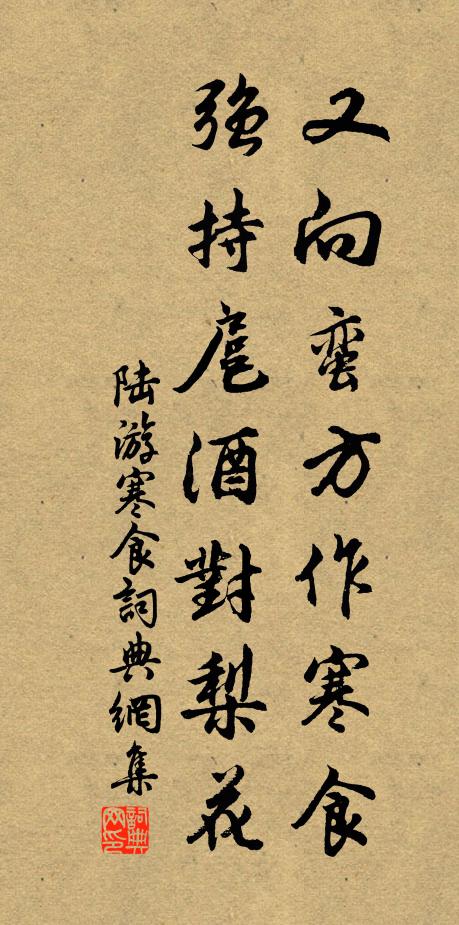 又向蛮方作寒食
強持卮酒對梨花
陆游寒食詞典網集
詞典网印